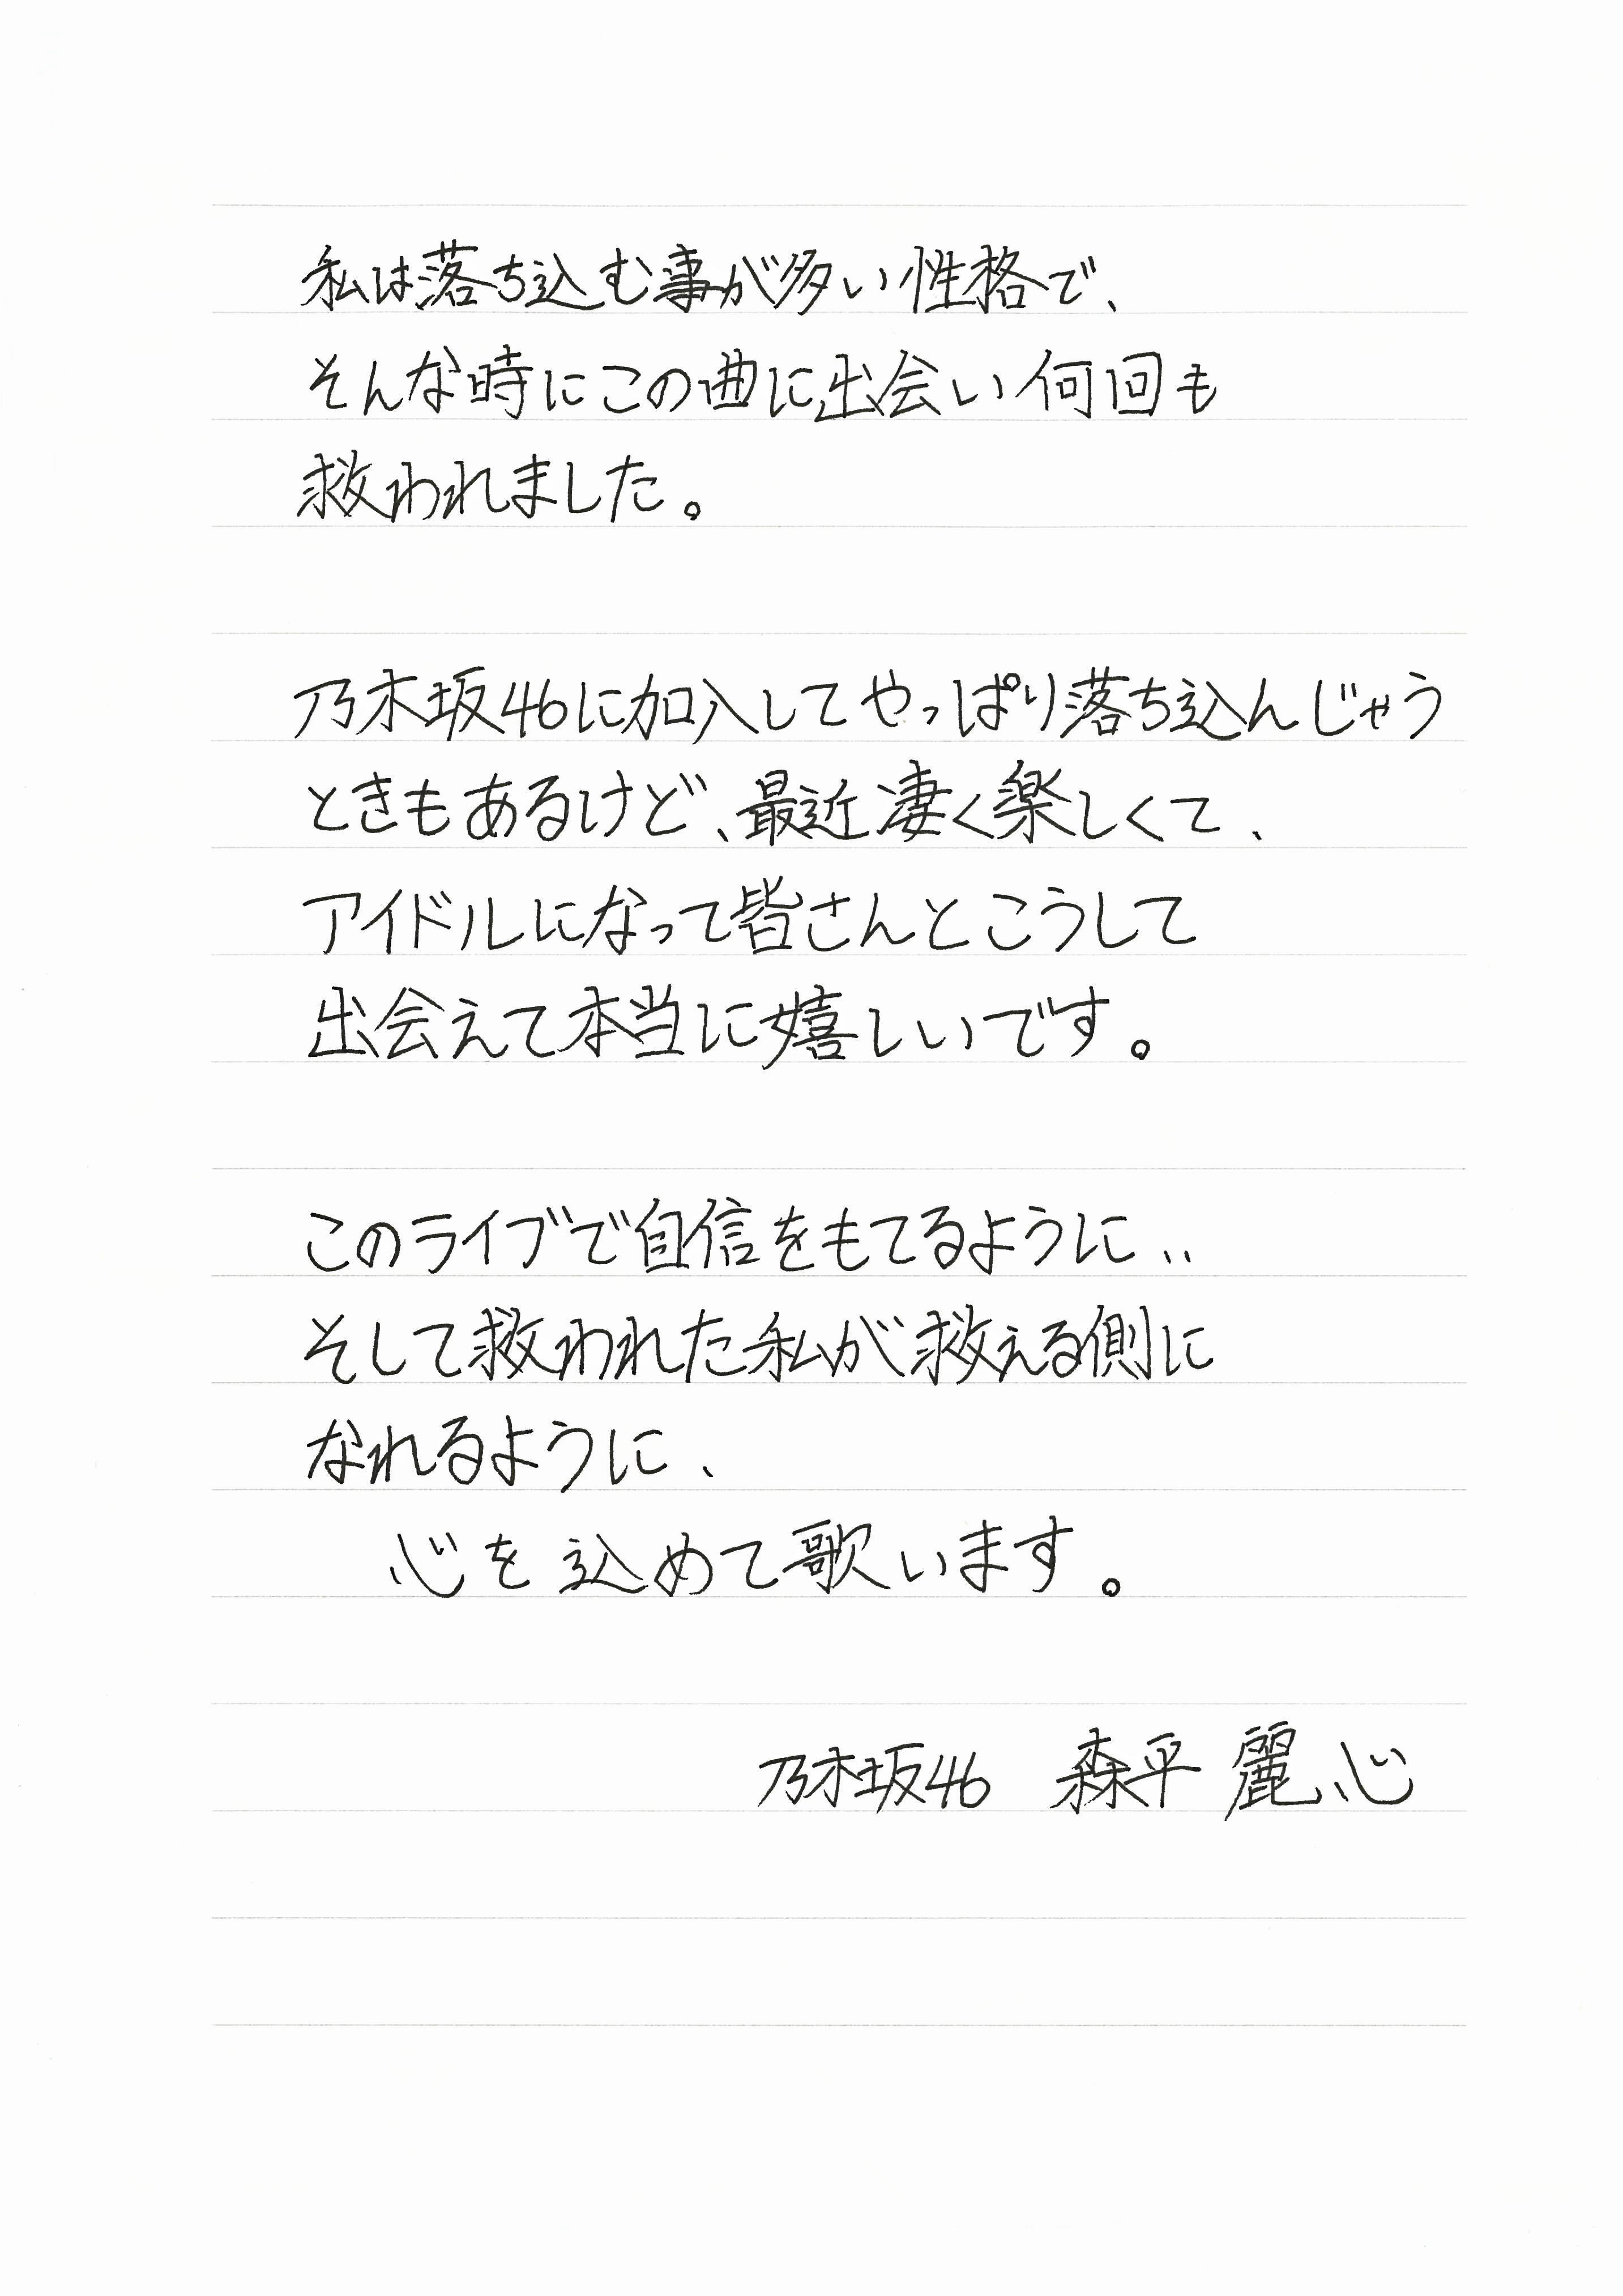 私は落ち込む事が多い性格で、
そんな時にこの曲に出会い何回も
救われました。
乃木坂46に加入してやっぱり落ち込んじゃう
ときもあるけど、最近凄く楽しくて、
アイドルになって皆さんとこうして
出会えて本当に嬉しいです。
このライブで自信をもてるように‥
そして救われた私が救える側に
なれるように、
心を込めて歌います。
乃木坂46 森平麗心